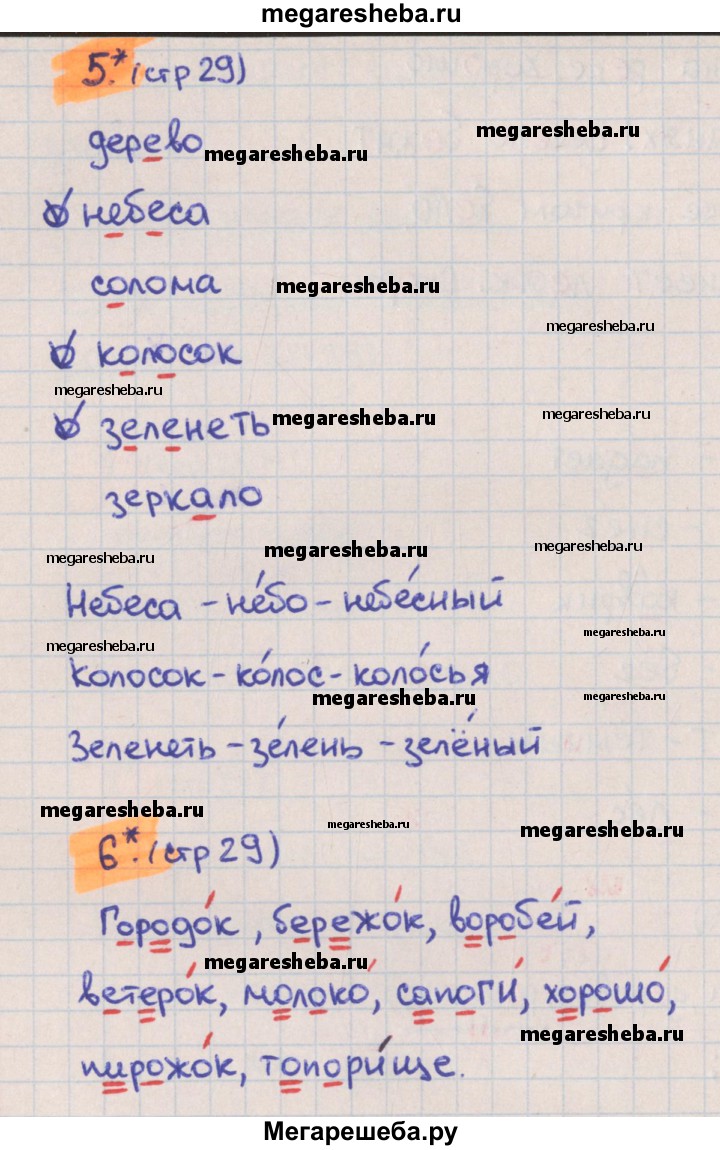 megaresheba.ru
5.* (стр 29)
megaresheba.ru
дерево megaresheba.ru
небеса
солома megaresheba.ru
megaresheba.ru
колосок
megaresheba.ru
зеленеть megaresheba.ru megaresheba.ru
зеркало
megaresheba.ru megaresheba.ru megaresheba.ru
Небеса - не́бо - небе́сный
megaresheba.ru
megaresheba.ru
Колосок - ко́лос - коло́сья
megaresheba.ru megaresheba.ru
Зеленеть - зе́лень - зелё́ный
megaresheba.ru megaresheba.ru megaresheba.ru
6.* (стр 29)
Городо́к, бережо́к, воробе́й,
megaresheba.ru
ветеро́к, молоко́, сапоги́, хорошо́,
megaresheba.ru
пирожо́к, топори́ще.
Мегарешеба.ру